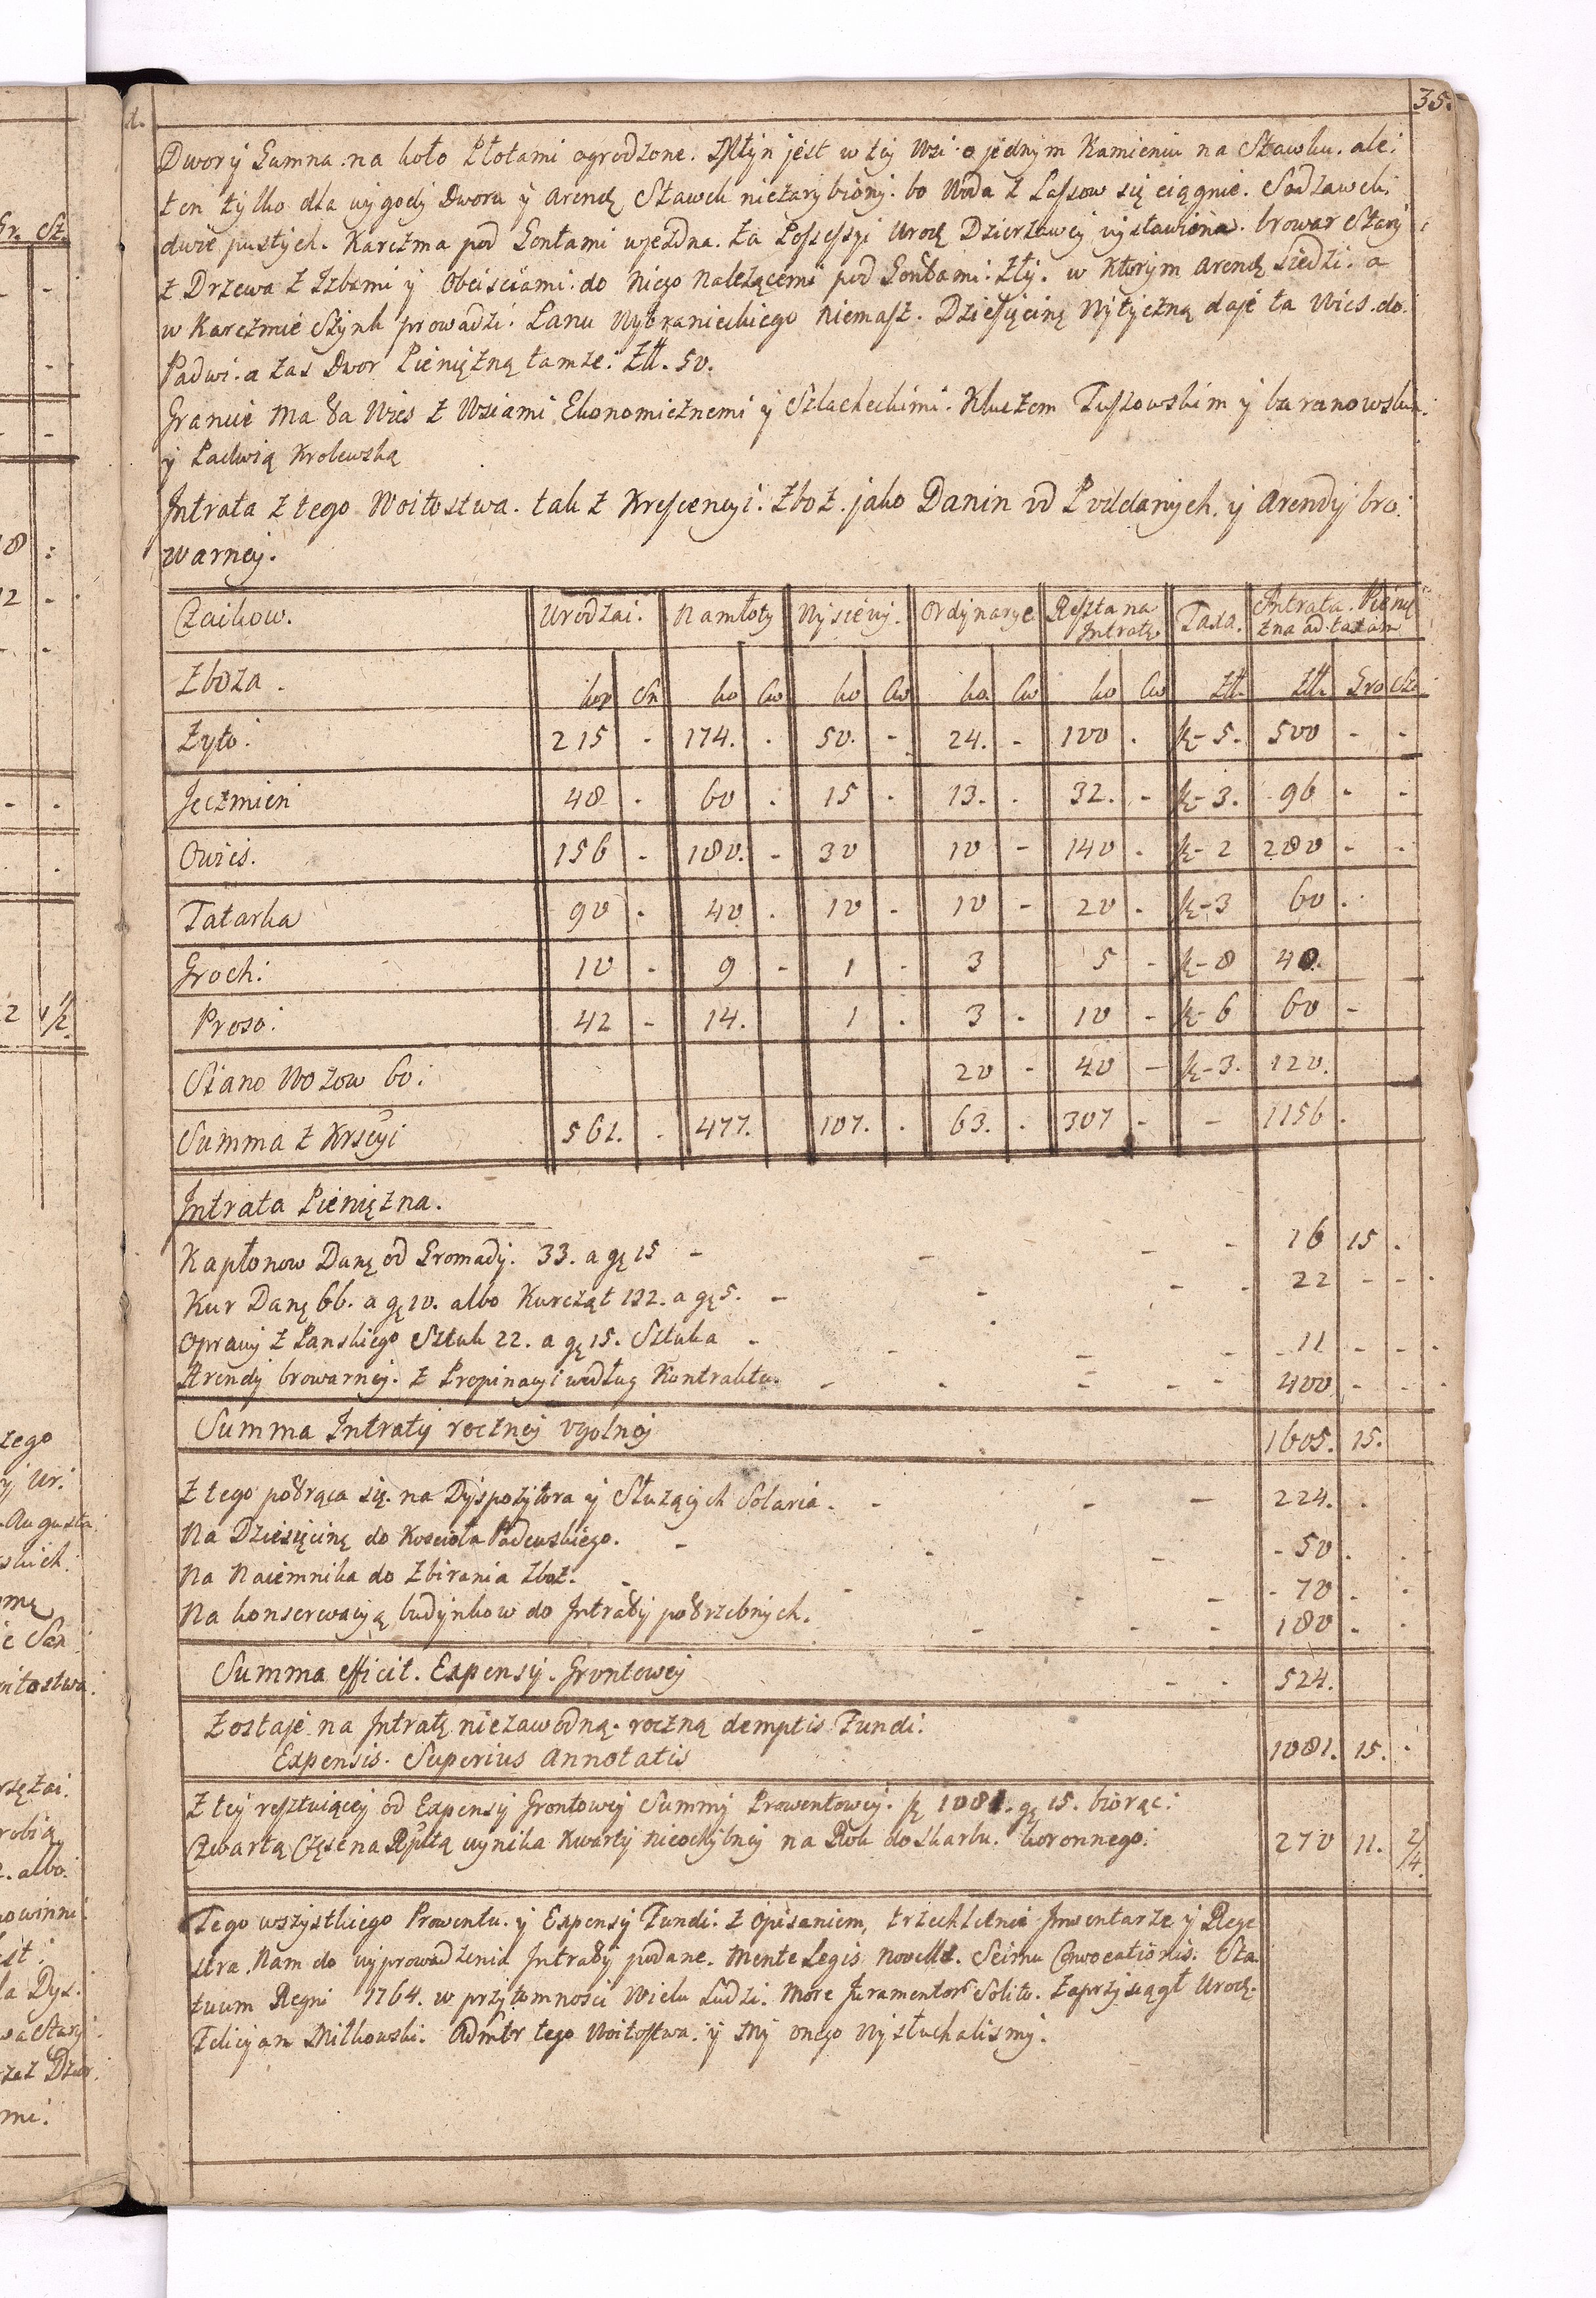 35.
Dwory Gumna na koło Płotami ogrodzone. Młyn jest w tey Wsi o jednym Kamieniu na Stawku. ale.
ten tylko dla wygody Dworu y Arendę Stawek niezarybiony. bo Woda z Lassow się ciągnie. Sadzawek.
dwie pustych. Karczma pod Gontami wjezdna. za Possessyi Urodz Dzierzawcy wystawiona. browar Stary
z Drzewa z Izbami y Obeisciami. do niego należącemi pod Gontami. Zły. w którym Arenda siedzi. a
w Karczmie Szynk prowadzi. Łanu Wybranieckiego niemasz. Dziesięcinę Wytyczną daje ta Wies. do.
Padwi. a zas Dwor Pieniężną tamze. Złł. 50.
Granice ma ta Wies z Wsiami Ekonomicznemi y Szlacheckimi. Kluczem Tuszowskim y baranowskim.
y Padwią Krolewską
Intrata z tego Woitostwa. tak z Krescencyi. Zboz. jako Danin od Poddanych. y Arendy bro.
warney.
Czaikow. Urodzai. Namłoty Wysiewy. Ordynarye Reszta na Intratę. Taxa. Intrata. Pienię
żna ad taxam
Zboza. kop Sn ko Cw ko Cw ko Cw ko Cw Złł. Złł. Gro Sze
Zyto. 215 - 174. . 50. - 24. - 100 . f-5. 500 - -
Jęczmien 48 . 60 . 15 . 13. . 32. - f-3. 96 - -
Owies. 156 - 180. - 30 10 - 140 - f-2 280 - -
Tatarka 90 . 40 . 10 - 10 - 20 . f-3 60 .
Groch. 10 - 9 - 1 - 3 5 - f-8 40.
Proso. 42 - 14. 1 . 3 . 10 - f-6 60 -
Siano Wozow 60. 20 - 40 - f-3. 120.
Summa z Krscyi 561. . 477. 107. . 63. . 307 - - 1156 .
Intrata Pieniężna.
Kapłonow Danę od Gromady. 33. a gę 15 - 16 15 .
Kur Danę 66. a gę 10. albo Kurcząt 132. a gę 5. - 22 - -
Oprawy z Panskiego Sztuk 22. a gę 15. Sztuka - 11 - -
Arendy browarney. z Propinacyi według Kontraktu. - 400 - -
Summa Intraty roczney ogolney 1605. 15.
Z tego potrąca się. na Dyspozytora y Służących Solaria. - 224. .
Na Dziesięcinę do Kościoła Padewskiego. - 50 .
Na Naiemnika do Zbirania Zboz. - 70 .
Na konserwacyą budynkow do Intraty potrzebnych. 180 .
Summa efficit. Expensy. Grontowey 524.
Zostaje na Intratę niezawodną. roczną demptis Fundi.
Expensis. Superius Annotatis 1081. 15. .
Z tey resztuiącey od Expensy Grontowey Summy Prowentowey. f 1081. gę 15. biorąc.
Czwartą Częsc na Rpltą wynika Kwarty nieochybney na Rok do skarbu. koronnego. 270 11. 2/4
Tego wszystkiego Prowentu. y Expensy Fundi. z Opisaniem, trzechletnie Inwentarze y Rege
stra. Nam do wyprowadzenia Intraty podane. Mente Legis novellæ. Seimu Convocationis. Sta
tuum Regni 1764. w przytomności Wielu Ludzi. More Juramentor Solito. Zaprzysiągł Urodz.
Felicyan Miłkowski. Admtr tego Woitostwa. y My onego Wysłuchalismy.